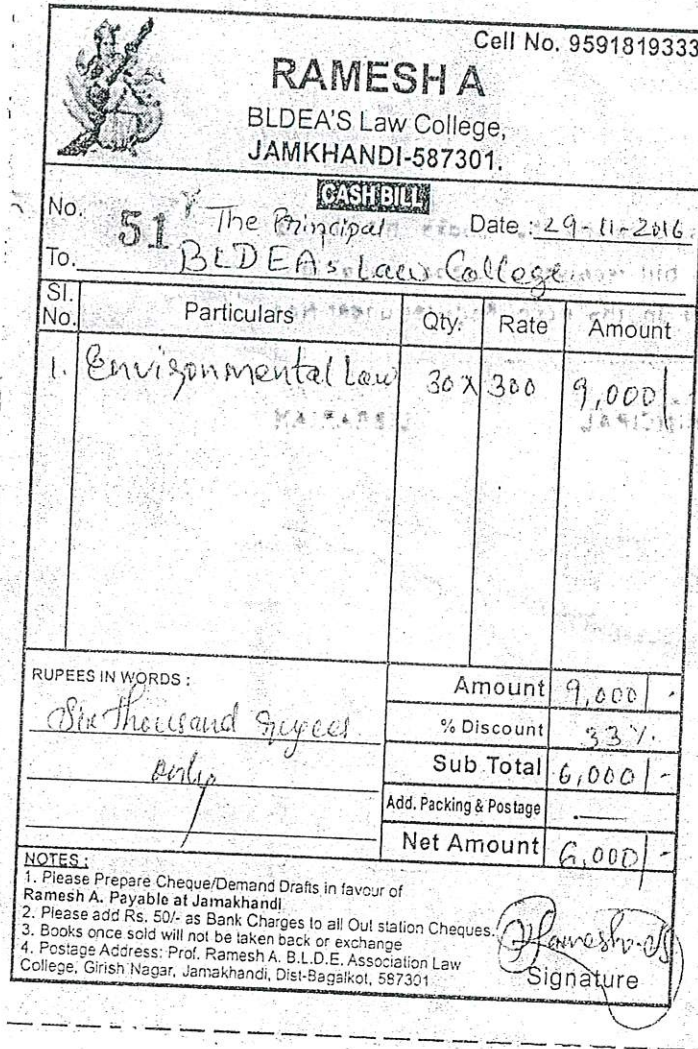 Cell No. 9591819333
RAMESH A
BLDEA'S Law College,
JAMKHANDI-587301.
CASH BILL
No. 51 The Principal Date : 29-11-2016
To. BLDEAs Law College
Sl. No. Particulars Qty. Rate Amount
1. Environmental Law 30 x 300 9,000/-
RUPEES IN WORDS : Amount 9,000/-
Six thousand rupees % Discount 33%
only Sub Total 6,000/-
Add. Packing & Postage —
Net Amount 6,000/-
NOTES :
1. Please Prepare Cheque/Demand Drafts in favour of
Ramesh A. Payable at Jamakhandi
2. Please add Rs. 50/- as Bank Charges to all Out station Cheques.
3. Books once sold will not be taken back or exchange
4. Postage Address: Prof. Ramesh A. B.L.D.E. Association Law
College, Girish Nagar, Jamakhandi, Dist-Bagalkot, 587301
Signature